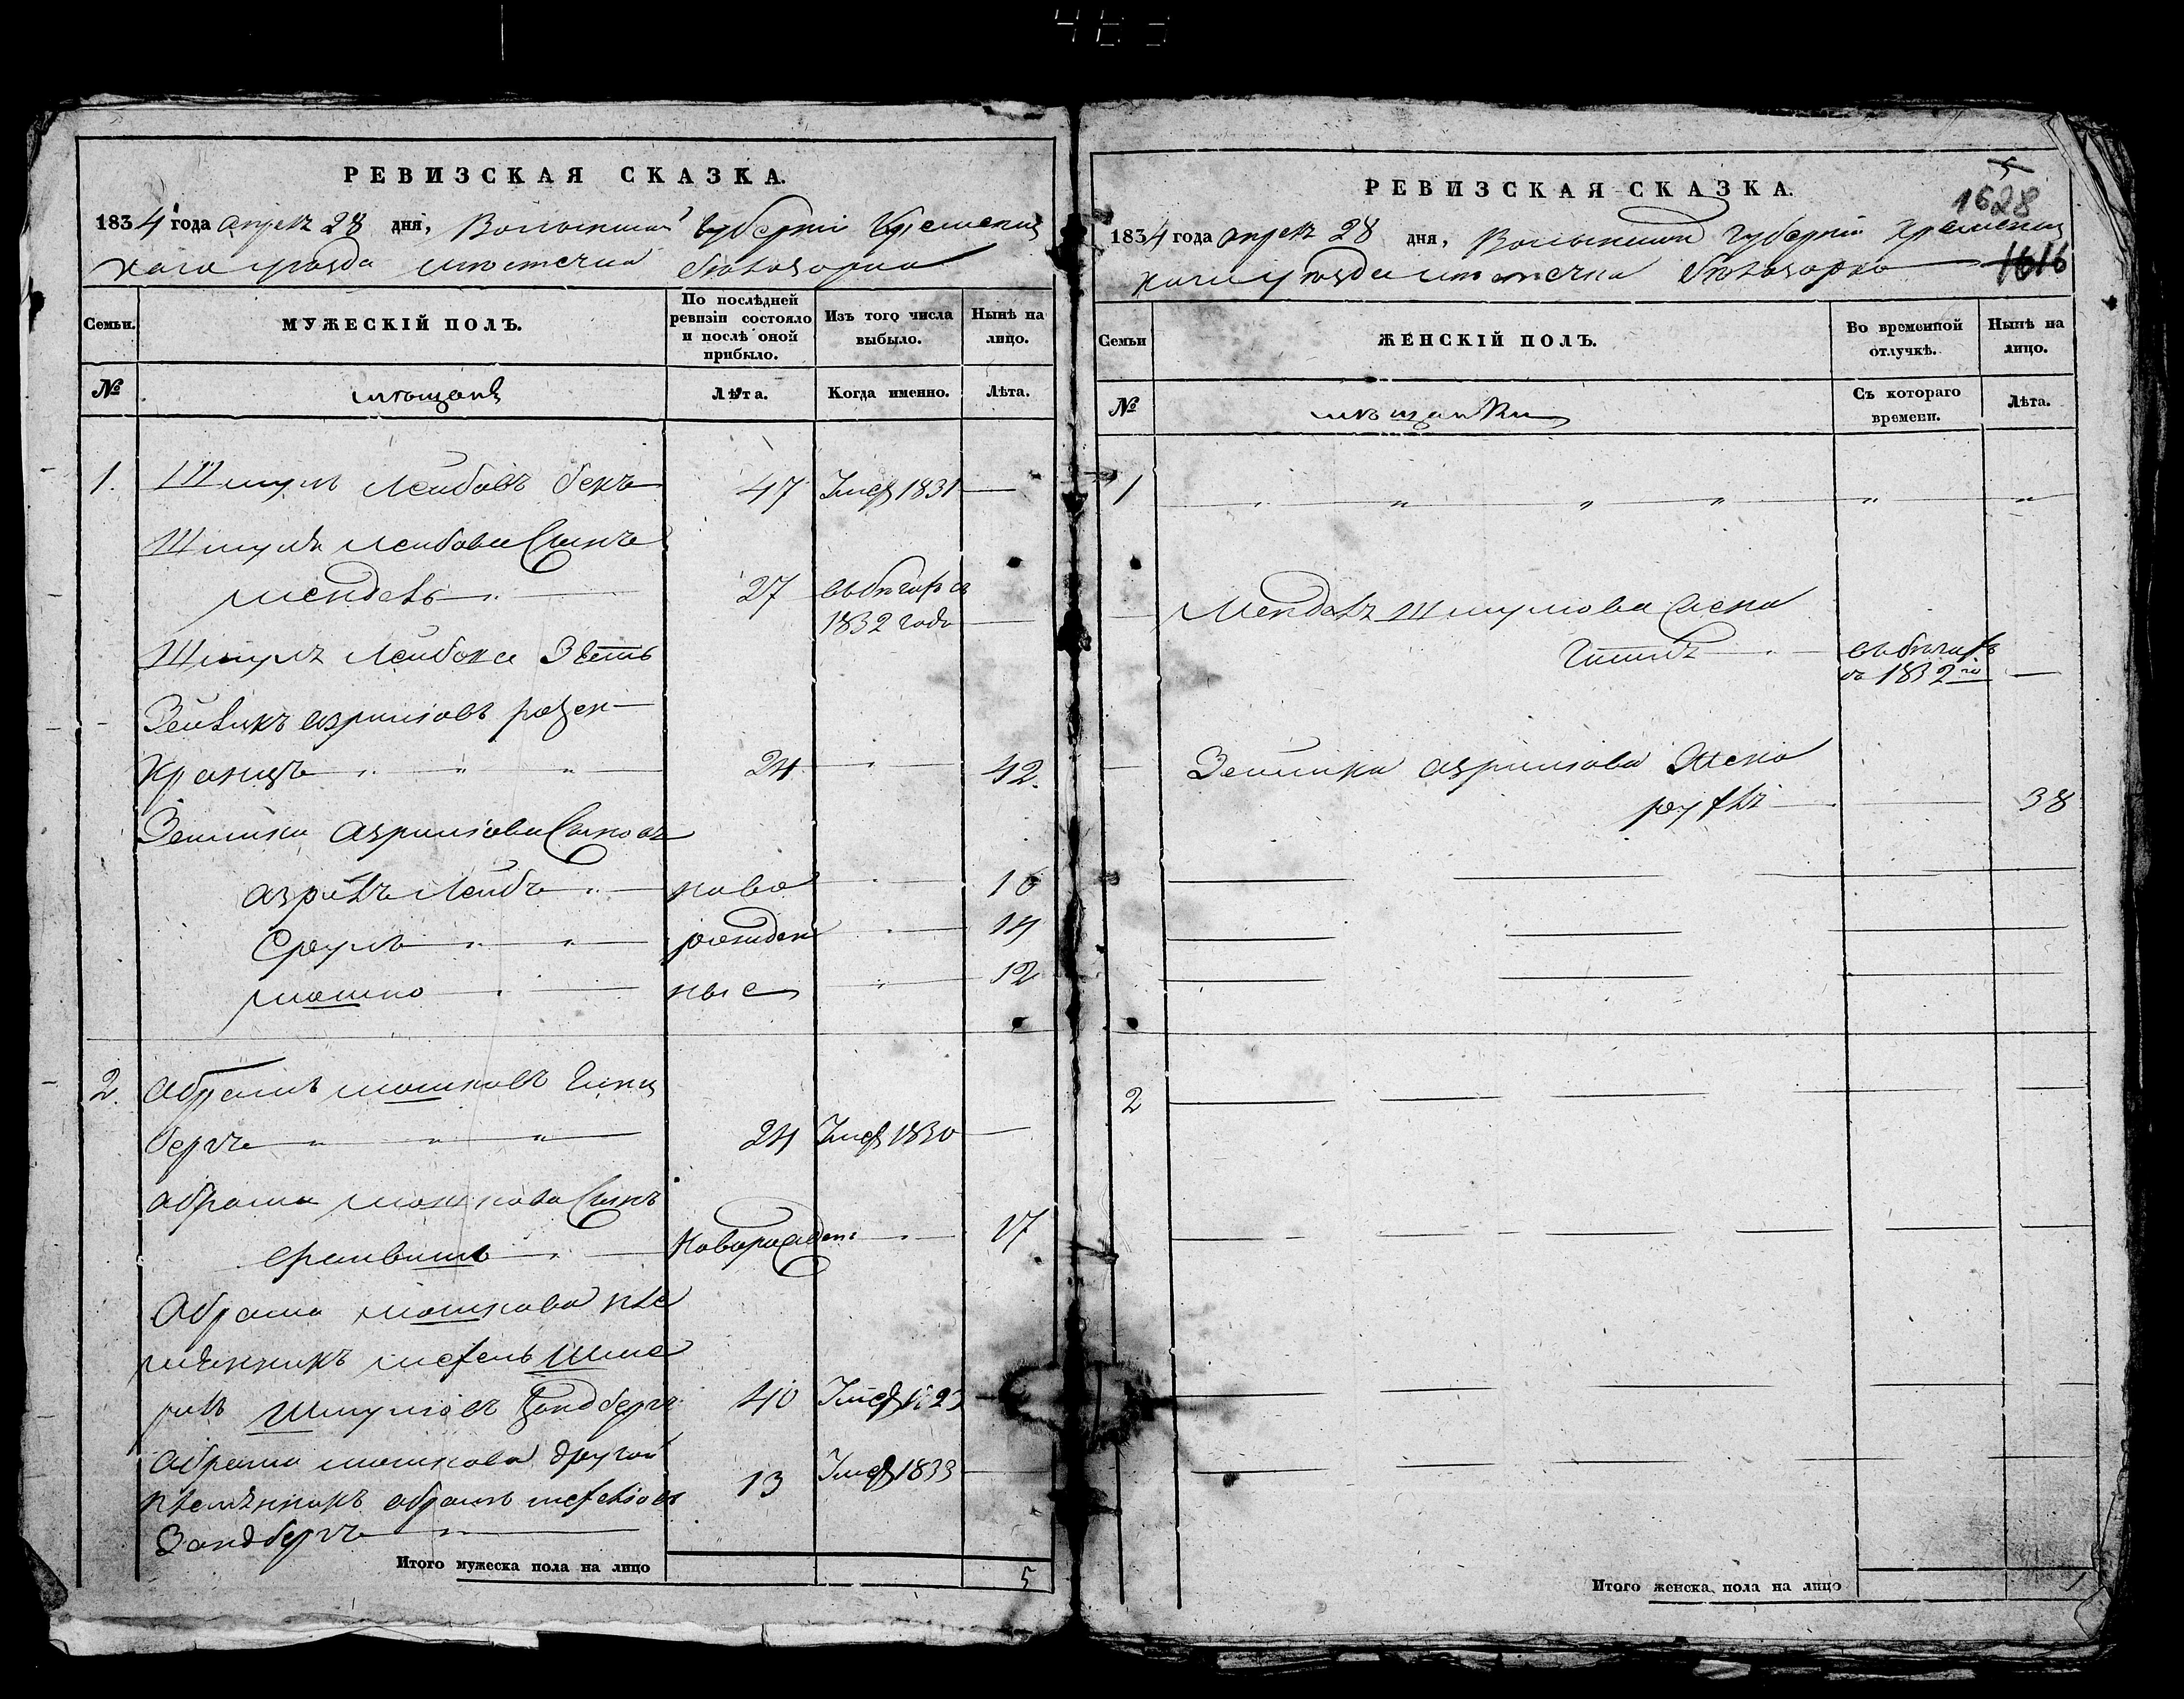 РЕВИЗСКАЯ СКАЗКА.
1834 года апреля 28 дня, Волынской Губерніи Кременец
каго уезда местечка Белозорки
Семьи.
МУЖЕСКІЙ ПОЛЪ.
По послѣдней ревизіи состояло и послѣ оной прибыло.
Изъ того числа выбыло.
Нынѣ на лицо.
№
мещане
Лѣта.
Когда именно.
Лѣта.
1. Шмуль Лейбовъ 47 Умер 1831
Шмуля Лейбова Сынъ
Мендель 27 в
1832 года
Шмуля Лейбова Зять
Зейликъ Азриліовъ Розен
Кранцъ 24 42.
Зейлика Азриліова Сыновья
Азриль Лейбъ ново 16
Сруль рожден 14
Мошко ные 12
2. Абрамъ Мошковъ Гинц
бергъ 24 Умер 1830
Абрама Мошкова Сынъ
Новорожден: 17
Абрама Мошкова пле
мянникъ
Шмуліовъ Зандбергъ 40 Умер 1823
Абрама Мошкова другой
племянникъ Абрамъ 13 Умер 1833
Зандбергъ
Итого мужеска пола на лицо 5
РЕВИЗСКАЯ СКАЗКА.
5
1628
1834 года апреля 28 дня, Волынской Губерніи Кременец
каго уезда местечка Белозорки 1616
Семьи
ЖЕНСКІЙ ПОЛЪ.
Во временной отлучкѣ.
Нынѣ на лицо.
№
мещанки
Съ котораго времени.
Лѣта.
1
Мендель Шмулова Жена
в 1832 го
Зейлика Азриліова Жена
38
2
Итого женска пола на лицо 1